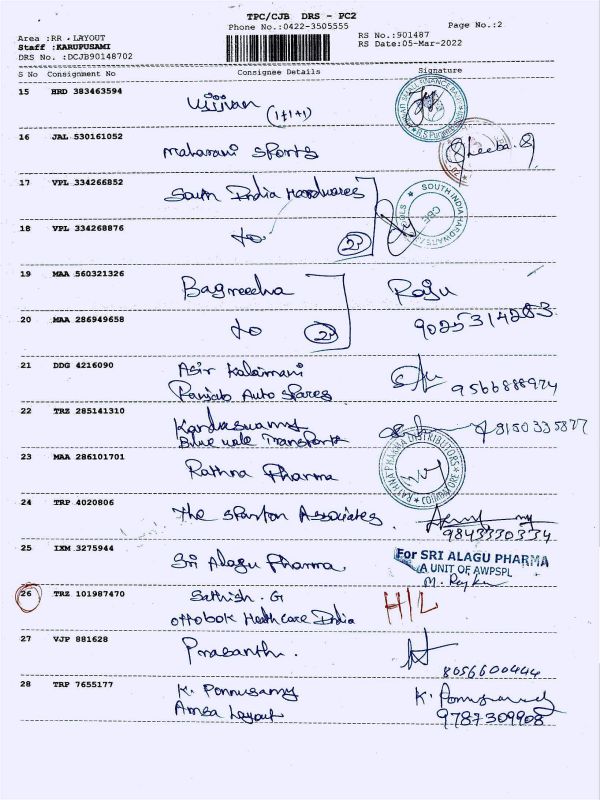 TPC/CJB DRS - PC2
Phone No.:0422-3505555 Page No.:2
Area :RR - LAYOUT RS No.:901487
Staff :KARUPUSAMI RS Date:05-Mar-2022
DRS No. :DCJB90148702
S No Consignment No Consignee Details Signature
15 HRD 383463594 Ujjivan (1+1+1)
16 JAL 530161052 Maharani Sports Sheeba.
17 VPL 334266852 South India Hardwares SOUTH INDIA HARDWARES CBE
18 VPL 334268876 to 2
19 MAA 560321326 Bagreecha Raju
20 MAA 286949658 to 2 9025314283
21 DDG 4216090 Asir Kalaimani
Panjab Auto Spares 9566888974
22 TRZ 285141310 Kandaswamy
Blue vale Transports
23 MAA 286101701 Rathna Pharma RATHNA PHARMA DISTRIBUTORS COIMBATORE
24 TRP 4020806 The Spartan Associates 9843330334
25 IXM 3275944 Sri Alagu Pharma For SRI ALAGU PHARMA
A UNIT OF AWPSPL
26 TRZ 101987470 Sathish. G H/L
Ottobok Health Care India
27 VJP 881628 Prasanth. 8056600444
28 TRP 7655177 K. Ponnusamy K. Ponnusamy
Amsa Layout 9787309908